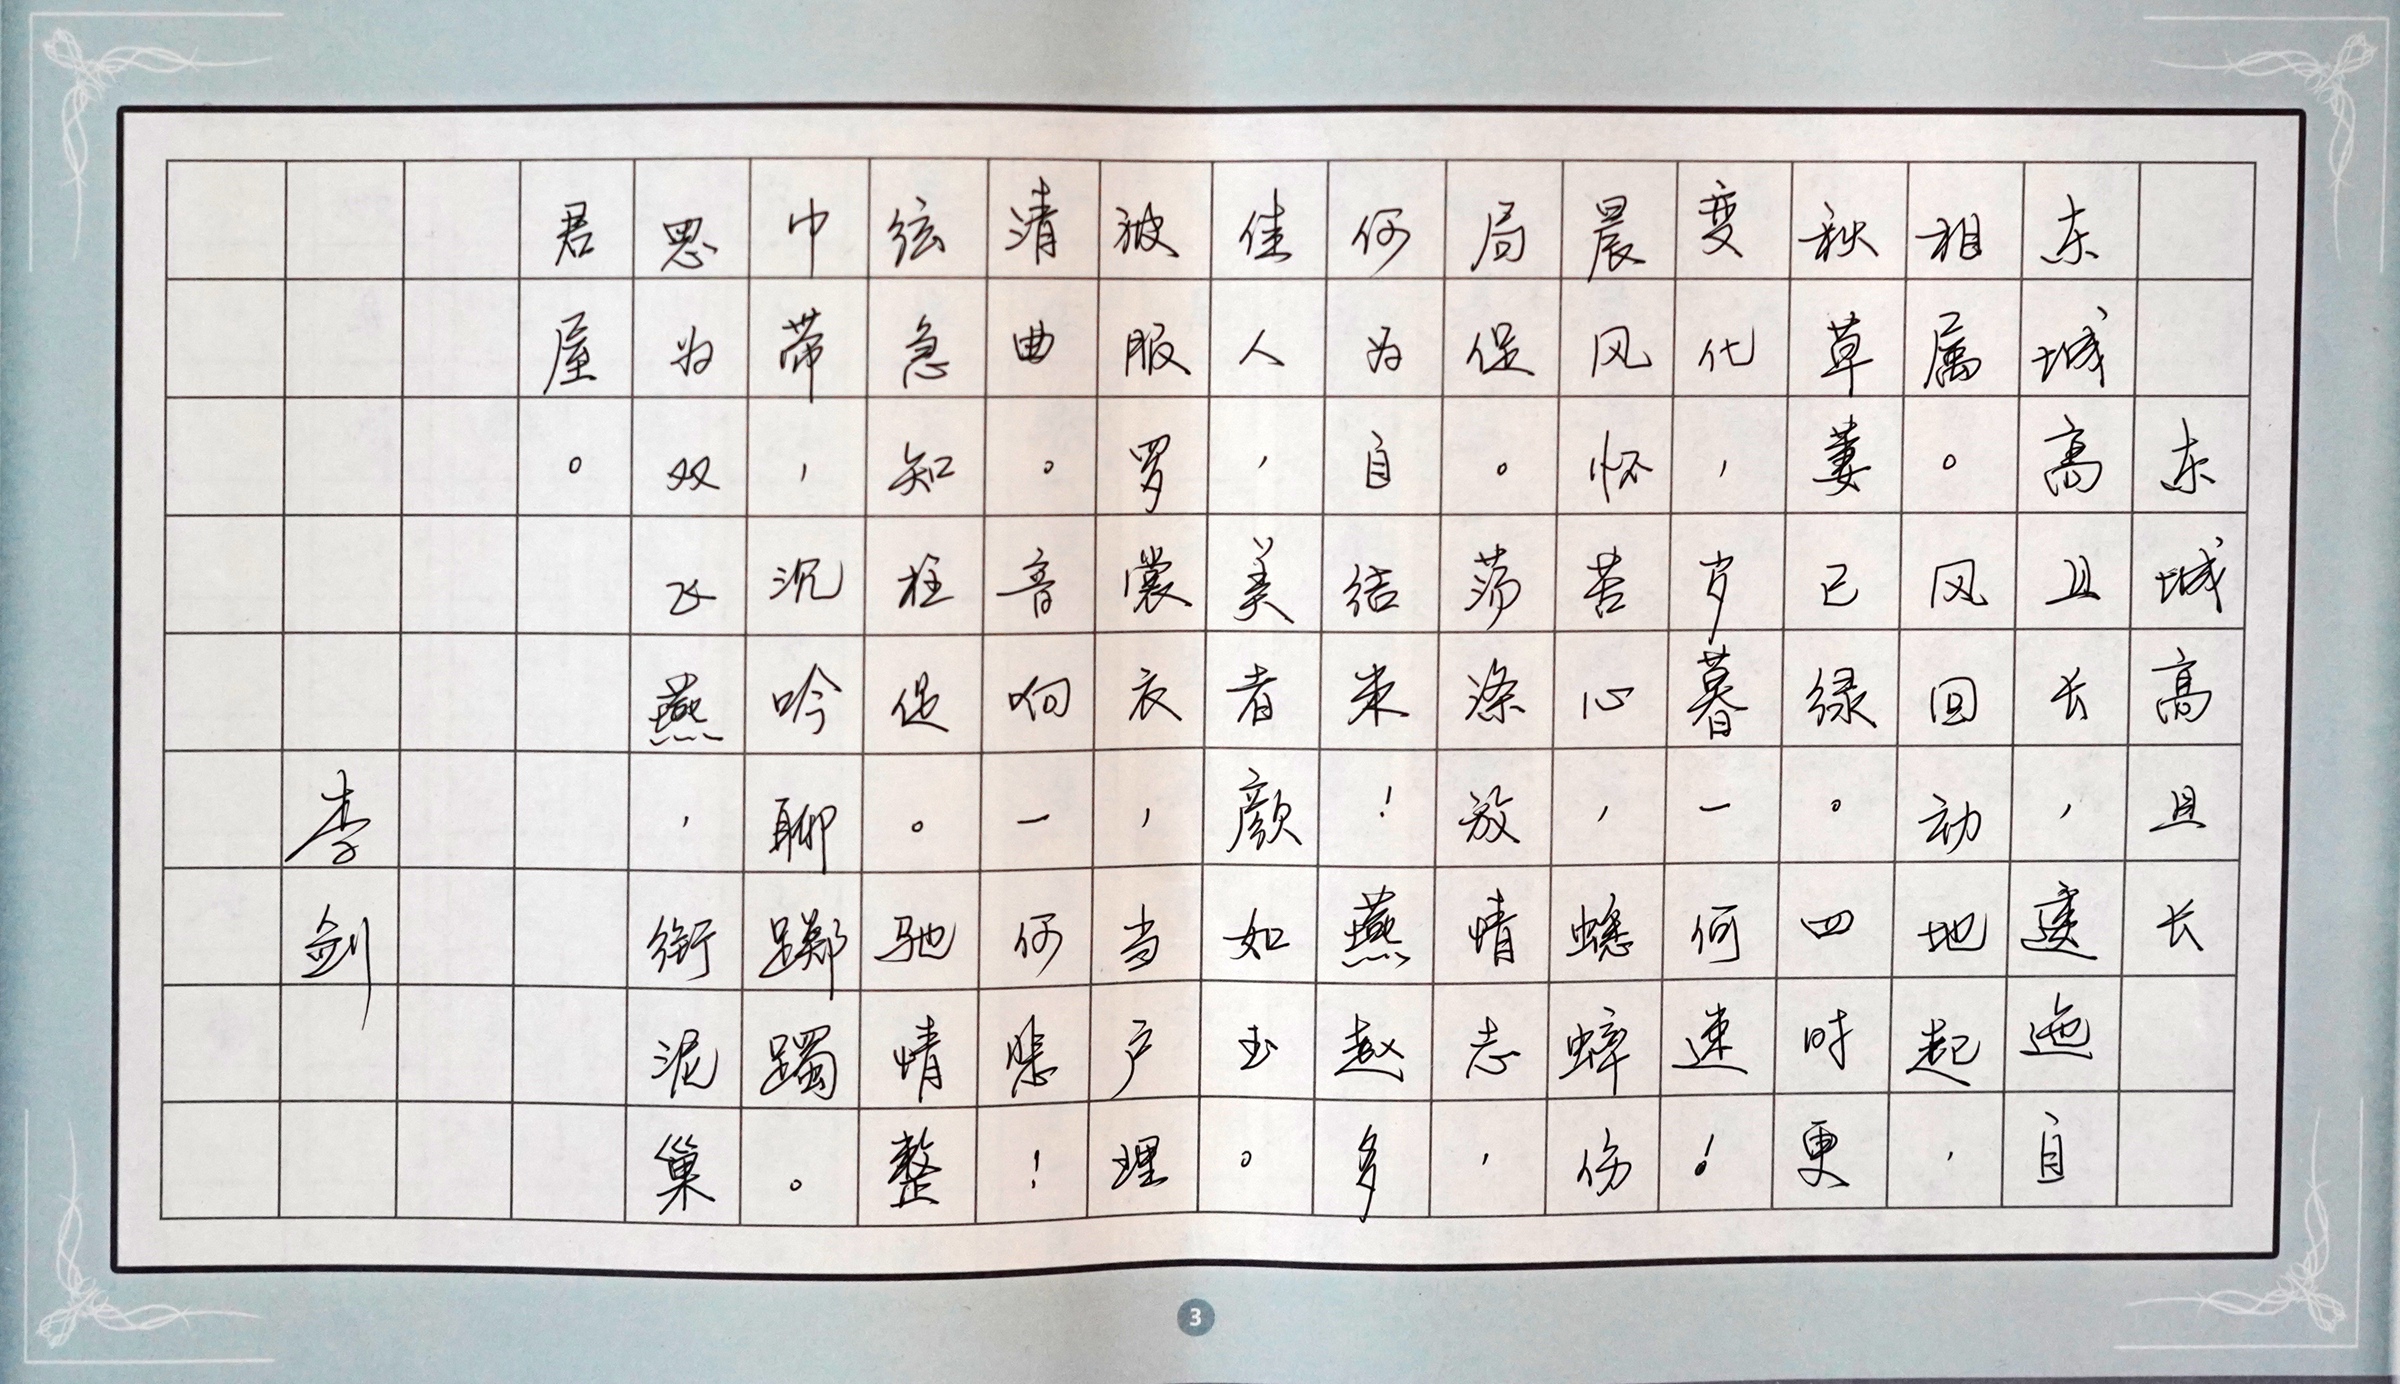 东城高且长
东城高且长，逶迤自
相属。风回动地起，
秋草萋已绿。四时更
变化，岁暮一何速！
晨风怀苦心，蟋蟀伤
局促。荡涤放情志，
何为自结束！燕赵多
佳人，美者颜如玉。
被服罗裳衣，当户理
清曲。音响一何悲！
弦急知柱促。驰情整
巾带，沉吟聊踯躅。
思为双飞燕，衔泥巢
君屋。
李剑
3